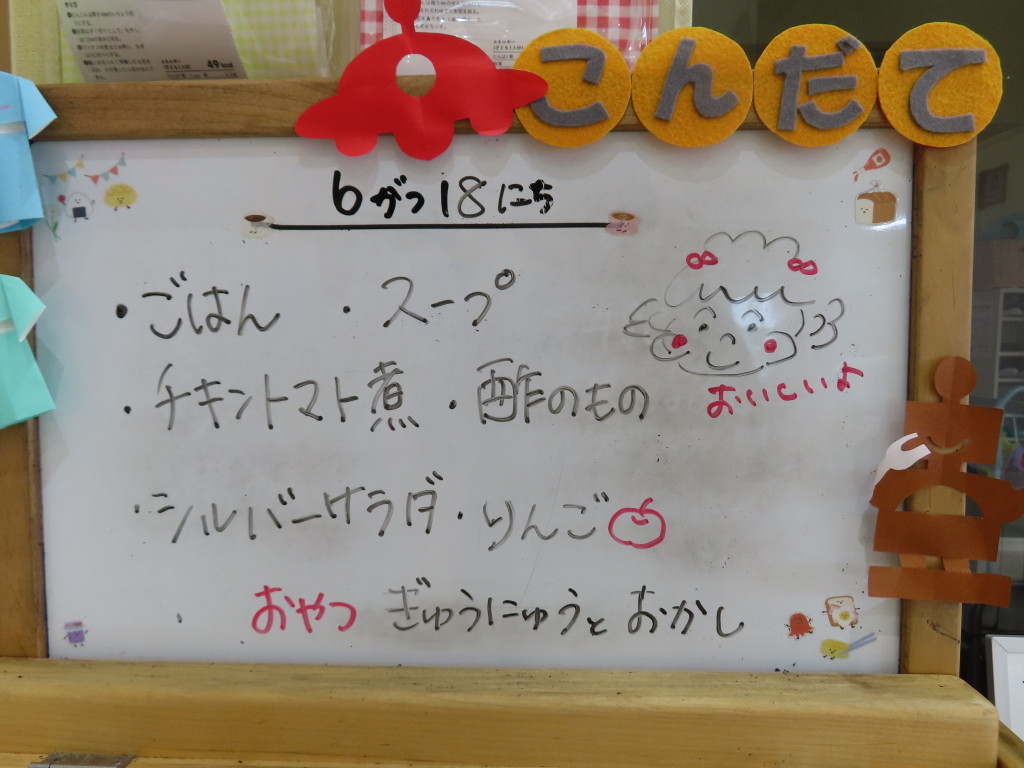 49kcal
こんだて
6がつ18にち
・ごはん ・スープ
・チキントマト煮 ・酢のもの
おいしいよ
・シルバーサラダ ・りんご
おやつ ぎゅうにゅうと おかし